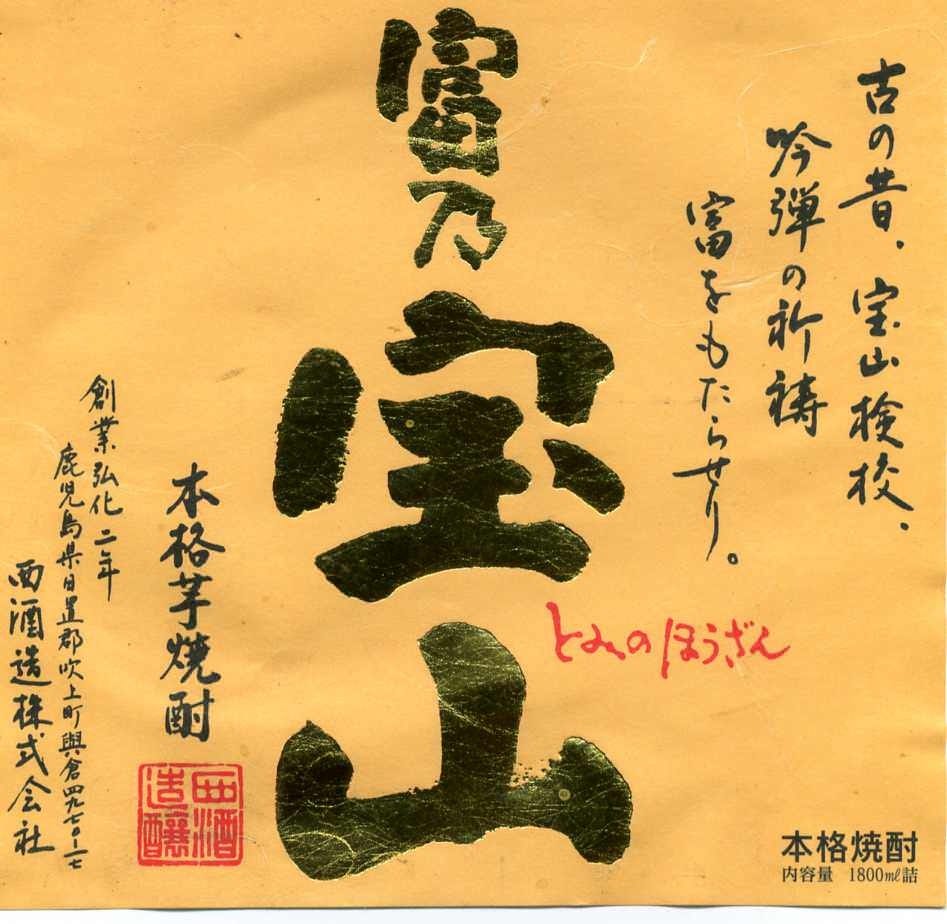 古の昔、宝山検校、
吟弾の祈祷
富をもたらせり。
富乃宝山
とみのほうざん
本格芋焼酎
創業弘化二年
鹿児島県日置郡吹上町與倉四九七〇-一七
西酒造株式会社
西酒
造醸
本格焼酎
内容量 1800ml詰